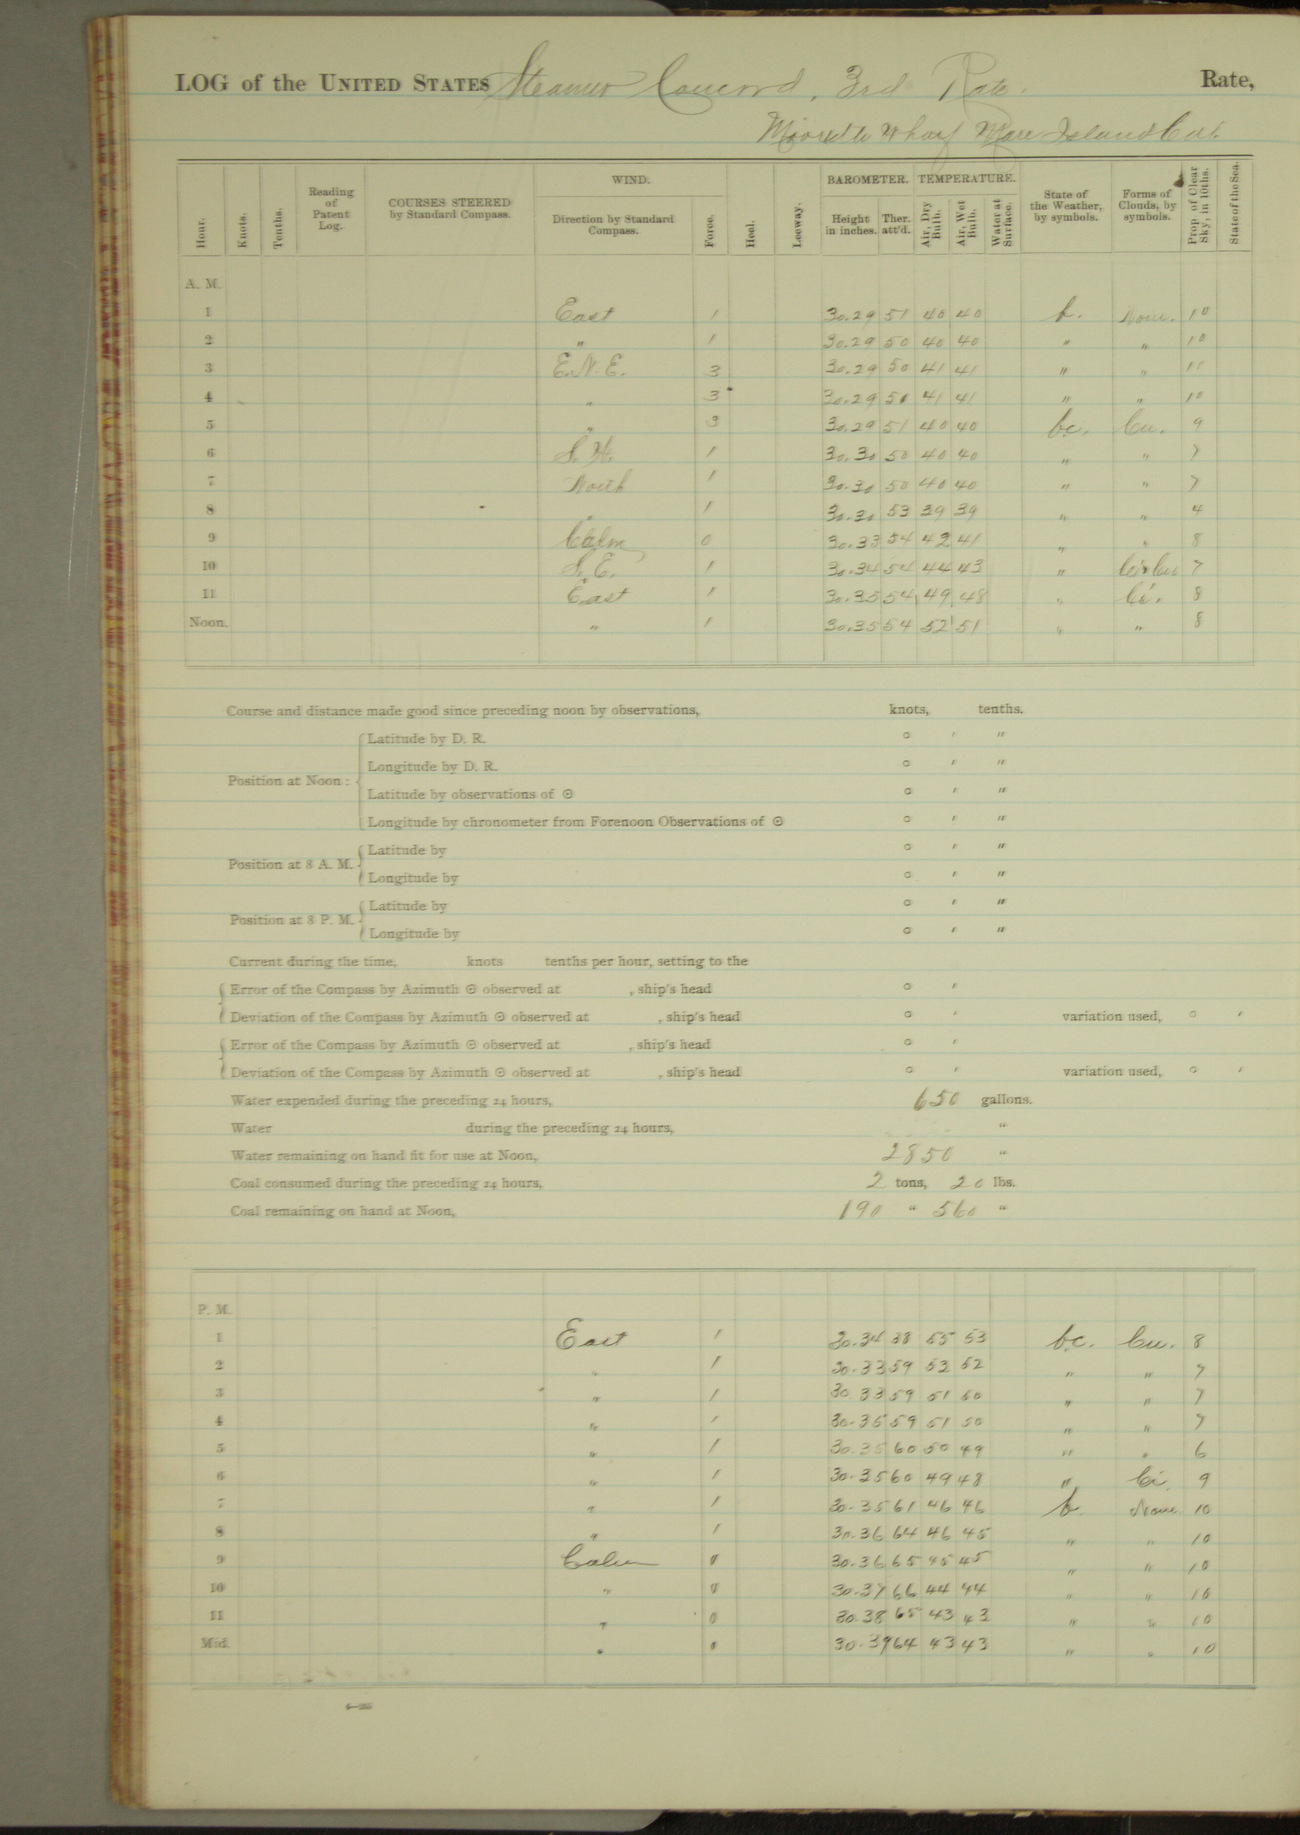 LOG of the UNITED STATES Steamer Concord, 3rd Rate. Rate,
Moored to Wharf Mare Island Cal.
Hour. Knots. Tenths. Reading of Patent Log. COURSES STEERED by Standard Compass. WIND. Direction by Standard Compass. Force. Heel. Leeway. BAROMETER. Height in inches. Ther. att'd. TEMPERATURE. Air, Dry Bulb. Air, Wet Bulb. Water at Surface. State of the Weather, by symbols. Forms of Clouds, by symbols. Prop. of Clear Sky, in 10ths. State of the Sea.
A. M.
1 East 1 30.29 51 40 40 b. None. 10
2 " 1 30.29 50 40 40 " " 10
3 E.N.E. 3 30.29 50 41 41 " "
4 " 3 30.29 51 41 41 " " 10
5 " 3 30.29 51 40 40 bc. Cu. 9
6 1 30.30 50 40 40 " " 7
7 North 1 30.30 50 40 40 " " 7
8 " 1 30.30 53 39 39 " " 4
9 Calm 0 30.33 54 42 41 " " 8
10 S.E. 1 30.34 54 44 43 " 7
11 East 1 30.35 54 49 48 " Ci. 8
Noon. " 1 30.35 54 52 51 " " 8
Course and distance made good since preceding noon by observations, knots, tenths.
Position at Noon: Latitude by D. R. ° ' "
Longitude by D. R. ° ' "
Latitude by observations of ☉ ° ' "
Longitude by chronometer from Forenoon Observations of ☉ ° ' "
Position at 8 A. M. Latitude by ° ' "
Longitude by ° ' "
Position at 8 P. M. Latitude by ° ' "
Longitude by ° ' "
Current during the time, knots tenths per hour, setting to the
Error of the Compass by Azimuth ☉ observed at , ship's head ° '
Deviation of the Compass by Azimuth ☉ observed at , ship's head ° ' variation used, ° '
Error of the Compass by Azimuth ☉ observed at , ship's head ° '
Deviation of the Compass by Azimuth ☉ observed at , ship's head ° ' variation used, ° '
Water expended during the preceding 24 hours, 650 gallons.
Water during the preceding 24 hours, "
Water remaining on hand fit for use at Noon, 2850 "
Coal consumed during the preceding 24 hours, 2 tons, 20 lbs.
Coal remaining on hand at Noon, 190 " 560 "
P. M.
1 East 1 30.34 58 55 53 bc. Cu. 8
2 " 1 30.33 59 53 52 " " 7
3 " 1 30.33 59 51 50 " " 7
4 " 1 30.35 59 51 50 " " 7
5 " 1 30.35 60 50 49 " " 6
6 " 1 30.35 60 49 48 " Ci. 9
7 " 1 30.35 61 46 46 b. None 10
8 " 1 30.36 64 46 45 " " 10
9 Calm 0 30.36 65 45 45 " " 10
10 " 0 30.37 66 44 44 " " 10
11 " 0 30.38 65 43 43 " " 10
Mid. " 0 30.39 64 43 43 " " 10